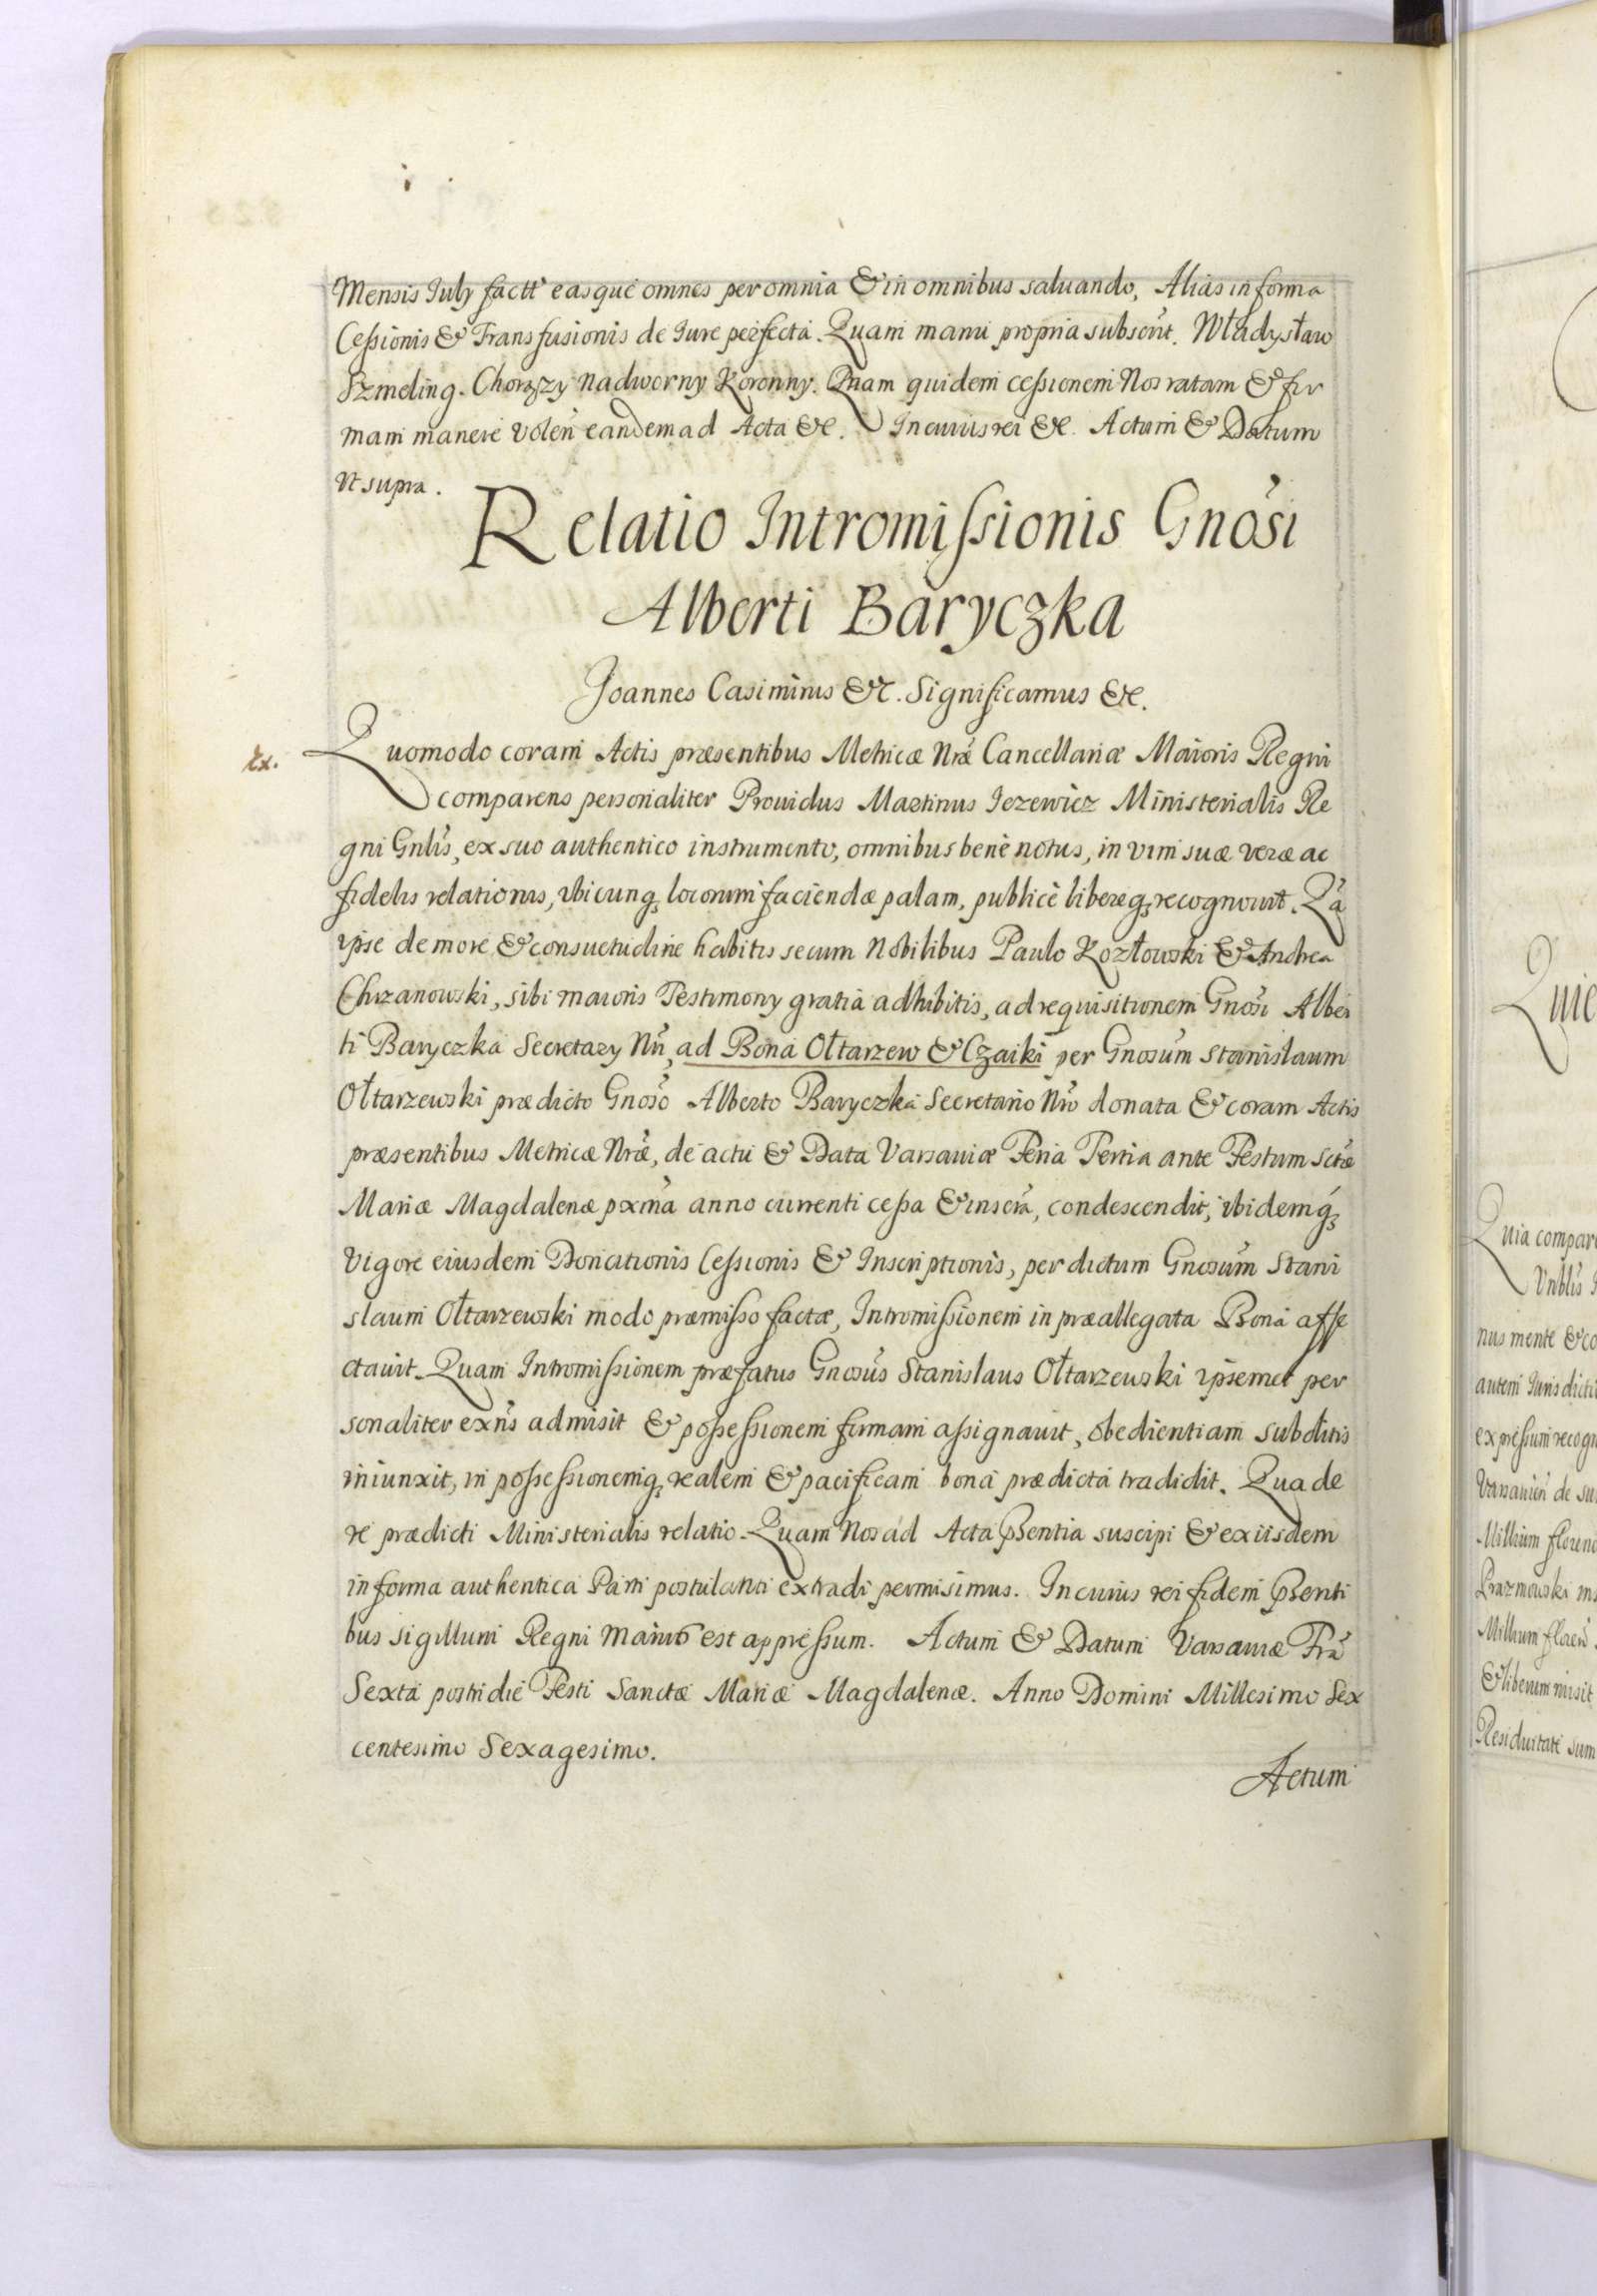 Mensis July factt easque omnes per omnia & in omnibus saluando, Alias in forma
Cessionis & Transfusionis de Iure perfecta. Quam manu propria subscrit. Władysław
Szmeling. Chorąży nadworny Koronny. Quam quidem cessionem Nos ratam & fir
mam manere volen eandem ad Acta &c. In cuius rei &c. Actum & Datum
ut supra.
Relatio Intromissionis Gnosi
Alberti Baryczka
Joannes Casimirus &c. Significamus &c.
Ex.
Quomodo coram Actis præsentibus Metricæ Nræ Cancellariæ Maioris Regni
comparens personaliter Prouidus Martinus Jezewicz Ministerialis Re
gni Gnlis, ex suo authentico instrumento, omnibus bene notus, in vim suæ veræ ac
fidelis relationis, vbicunq locorum faciendæ palam, publice libereq recognouit. Qa
ipse de more & consuetudine habitis secum Nobilibus Paulo Kozłowski & Andrea
Chrzanowski, sibi maioris Testimony gratia adhibitis, ad requisitionem Gnosi Alber
ti Baryczka Secretary Nri, ad Bona Ołtarzew & Czaiki per Gnosum Stanislaum
Ołtarzewski prædicto Gnoso Alberto Baryczka Secretario Nro donata & coram Actis
præsentibus Metricæ Nræ, de actu & Data Varsauiæ Feria Tertia ante Festum Sctæ
Mariæ Magdalenæ pxma anno currenti cessa & inscra, condescendit, ibidemq
vigore eiusdem Donationis Cessionis & Inscriptionis, per dictum Gnosum Stani
slaum Ołtarzewski modo præmisso factæ, Intromissionem in præallegata Bona affe
ctauit. Quam Intromissionem præfatus Gnosus Stanislaus Ołtarzewski ipsemet per
sonaliter exns admisit & possessionem firmam assignauit, obedientiam subditis
iniunxit, in possessionemq realem & pacificam bona prædicta tradidit. Qua de
re prædicti Ministerialis relatio. Quam Nos ad Acta Psentia suscipi & ex iisdem
in forma authentica Parti postulanti extradi permisimus. In cuius rei fidem Psenti
bus sigillum Regni Maius est appressum. Actum & Datum Varsauiæ Fra
Sexta postridie Festi Sanctæ Mariæ Magdalenæ. Anno Domini Millesimo Sex
centesimo Sexagesimo.
Actum
Quie
Quia compar
Vnblis
nus mente & co
autem Iuris dicti
expressum recogn
Varsauien de su
Millium floreno
Prazmowski
Millium floren
& liberum misit
Residuitate sum